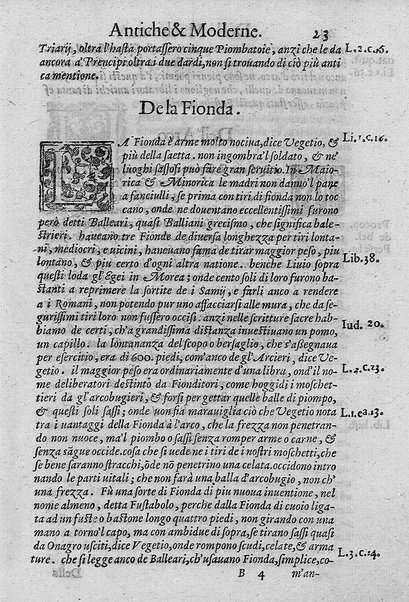 Antiche & Moderne. 23
Triarij, oltra l'hasta portassero cinque Piombatoie, anzi che le da L. 2. c. 16.
ancora a' Prencipi oltra i due dardi, non si trouando di ciò più anti
ca mentione.
De la Fionda.
LA Fionda è arme molto nociua, dice Vegetio, & Li. 1. c. 16.
più della saetta. non ingombra'l soldato, & ne'
luoghi sassosi può fare gran seruitio. In Maio-
rica & Minorica le madri non danno'l pane
a fanciulli, se prima con tiri di fionda non lo toc
cano, onde ne douentano eccellentissimi furono
però detti Balleari, quasi Balliani grecismo, che significa bale-
strieri. haueano tre Fionde de diuersa longhezza per tiri lonta
ni, mediocri, e uicini, haueano fama de tirar maggior peso, piu
lontano, & piu certo d'ogni altra natione. benche Liuio sopra Lib. 38.
questi loda gl Egei in Morea; onde cento soli di loro furono ba-
stanti a reprimere la sortite de i Samij, e farli anco a rendere
a i Romani, non potendo pur uno affacciarsi alle mura, che da se-
gurissimi tiri loro non fussero occisi. anzi nelle scritture sacre hab-
biamo de certi, ch'a grandissima distanza inuestiuano un pomo, Iud. 20.
un capillo. la lontananza del scopo o bersaglio, che s'assegnaua
per esercitio, era di 600. piedi, com'anco de gl'Arcieri, dice Ve-
getio. il maggior peso era ordinariamente d'una libra, ond'il no- L. 2. c. 23.
me deliberatori destinto da Fionditori, come hoggidi i moschet-
tieri da gl'arcobugieri, & forsi per gettar quelle balle di piompo,
& questi soli sassi; onde uon fia marauiglia ciò che Vegetio nota L. 1. ca. 13.
tra i uantaggi della Fionda à l'arco, che la frezza non penetran-
do non nuoce, ma'l piombo o sassi senza romper arme o carne, &
senza sāgue occide. cosa che si uede ne i tiri de i nostri moschetti, che
se bene saranno stracchi, ōde nō penetrino una celata. occidono intro
nando le parti uitali; che non farà una balla d'arcobugio, non ch'
una frezza. Fù una sorte di Fionda di piu nuoua inuentione, nel
nome almeno, detta Fustabolo, perche dalla Fionda di cuoio liga-
ta ad un fuste o bastone longo quattro piedi, non girando con una
mano a torno'l capo, ma con ambidue di sopra, se tirano sassi quasi
da Onagro usciti, dice Vegetio, onde rompono scudi, celate, & arma
ture. che si legge anco de Balleari, ch'usauano Fionda, simplice, co- L. 3. c. 14.
B 4 m'an-